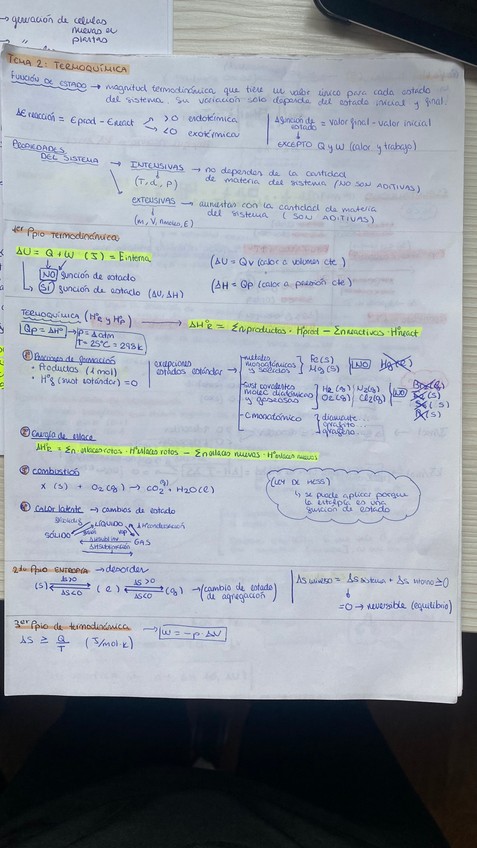 → generación de células
nuevas en
plantas
TEMA 2: TERMOQUÍMICA
FUNCIÓN DE ESTADO → magnitud termodinámica que tiene un valor único para cada estado
del sistema. Su variación solo depende del estado inicial y final.
ΔE reacción = Eprod - Ereact → >0 endotérmica
<0 exotérmica
Δfunción de estado = valor final - valor inicial
EXCEPTO Q y W (calor y trabajo)
PROPIEDADES DEL SISTEMA → INTENSIVAS → no dependen de la cantidad
(T, d, P) de materia del sistema (NO SON ADITIVAS)
EXTENSIVAS → aumentan con la cantidad de materia
(m, V, nmoles, E) del sistema (SON ADITIVAS)
1er Ppio Termodinámica
ΔU = Q + W (J) = Einterna
(ΔU = Qv (calor a volumen cte)
NO función de estado
SÍ función de estado (ΔU, ΔH)
(ΔH = Qp (calor a presión cte)
TERMOQUÍMICA (HºR y Hºf) → ΔHºR = Σnproductos · Hºprod - Σnreactivos · Hºreact
Qp = ΔHº → P = 1 atm
T = 25ºC = 298k
Procesos de formación
• Productos (1mol)
• Hºf (mol estándar) = 0
excepciones estados estándar
metales monoatómicos y sólidos
Fe (s)
Hg (s)
NO
Hg (l)
gases covalentes
molec diatómicas
y gaseosas
H2 (g) N2 (g)
O2 (g) Cl2 (g)
NO
(s)
(s)
(s)
C monoatómico
diamante...
grafito...
grafeno...
Energía de enlace
ΔHºR = Σn enlaces rotos · Hºenlaces rotos - Σn enlaces nuevos · Hºenlaces nuevos
combustión
X (s) + O2 (g) → CO2 (g) + H2O (l)
LEY DE HESS
↳ se puede aplicar porque
la entalpía es una
función de estado
Calor latente → cambios de estado
SÓLIDO
LÍQUIDO
GAS
2do Ppio ENTROPÍA → desorden
(s) ΔS>0 ΔS<0 (l) ΔS>0 ΔS<0 (g) → (cambio de estado
de agregación)
ΔS universo = ΔS sistema + ΔS entorno ≥ 0
=0 → reversible (equilibrio)
3er Ppio de termodinámica → W = -p · ΔV
ΔS ≥ Q/T (J/mol·k)